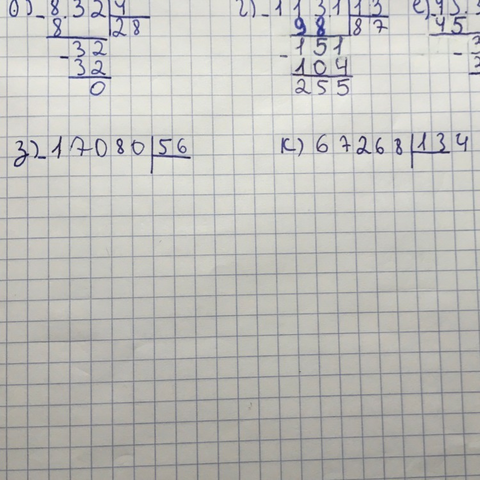 б) - 832 | 4
8 28
- 32
32
0
г) - 1131 | 13
98 87
- 151
104
255
е)
45
-
з) - 17080 | 56
к) 67268 | 134